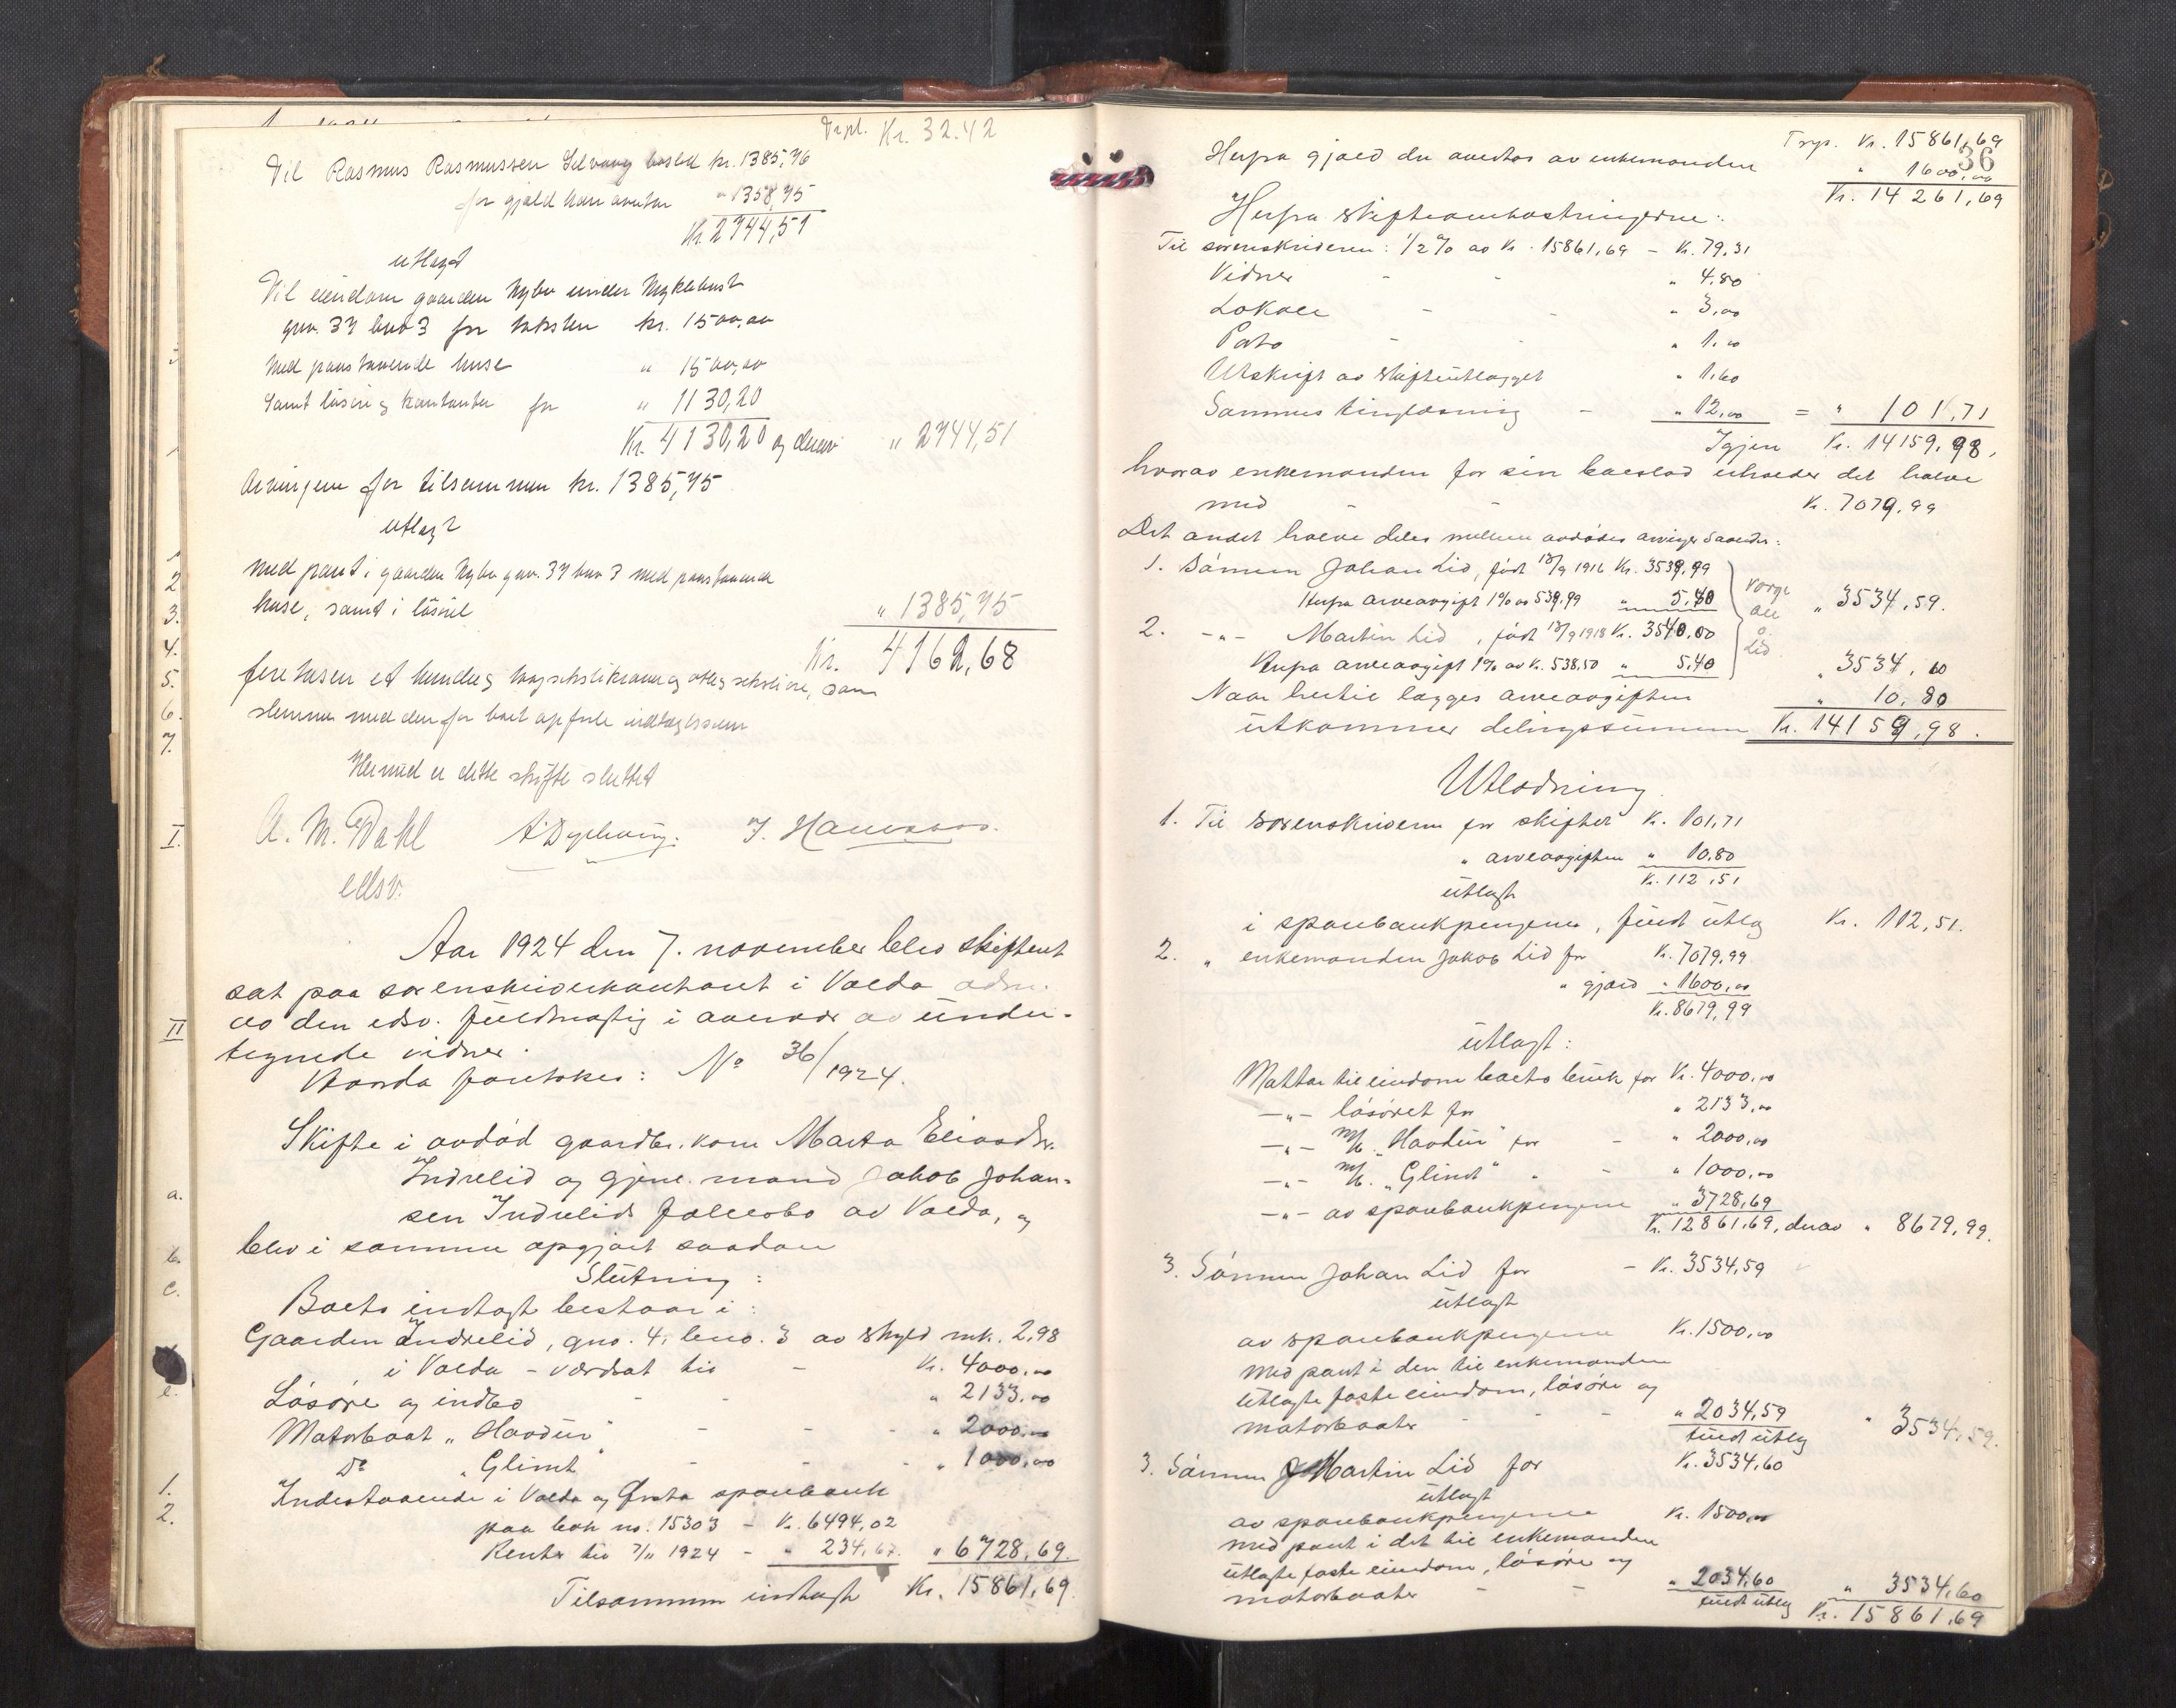 Trpt. Kr. 32.42
Til Rasmus Rasmussen Selvaag boslod kr. 1385,76
for gjæld han avertar " 1358,75
Kr. 2744,51
utlagt
Til eiendom gaarden Nybø under Myklebust
gnr. 37 bno 3 for taksten kr. 1500,00
Med paastaaende huse " 1500,00
Samt løsøre og kontanter for " 1130,20
Kr. 4130,20 og derav " 2744,51
Arvingene for tilsammen kr. 1385,75
utlagt
med pant i gaarden Nybø gnr. 37 bno 3 med paastaaende
huse, samt i løsøre " 1385,75
Kr. 4162,68
fire tusen et hundre og to og seksti kroner og otte og seksti øre, som
stemmer med den for boet opførte indtægtssum
Hermed er dette skifte sluttet
A. M. Dahl
edsv.
Aar 1924 den 7. november blev skifteret
sat paa sorenskriverkontoret i Volda adm.
av den edsv. fuldmægtig i overvær av under-
tegnede vidner.
Womda foretokes: No 36/1924.
Skifte i avdød gaardbr. kone Marta Eliasdtr.
Indrelid og gjenl. mand Jakob Johan-
sen Indrelids fællesbo av Volda, og
blev i samme opgjort saadan
Slutning:
Boets indtægt bestaar i:
Gaarden Indrelid, gno. 4, bno. 3 av skyld mk. 2,98
i Volda - værdsat til - Kr. 4000,00
Løsøre og indbo - - " 2133,00
Motorbaat "Havdur" - - " 2000,00
Do "Glimt" - - " 1000,00
Indestaaende i Volda og Ørsta sparebank
paa bok no. 15303 - Kr. 6494,02
Renter til 7/11 1924 - " 234,67. " 6728,69.
Tilsammen indtægt Kr. 15861,69.
2
3.
4.
5.
6.
7.
I.
II
a.
b.
c.
e.
1.
2.
36
Trsp. Kr. 15861,69
Herfra gjæld der avertas av enkemanden " 1600,00
Kr. 14261,69
Herfra skifteomkostningerne:
Til sorenskriveren: 1/2 % av Kr. 15861,69 - Kr. 79,31
Vidner - - " 4,80
Lokale - - " 3,00
Porto - - " 1,00
Utskrift av skifteutlægget " 1,60
Sammes tinglæsning - " 12,00 = " 101,71
Igjen Kr. 14159,98,
hvorav enkemanden for sin boeslod utlodes det halve
med - - Kr. 7079,99
Det andet halve deles mellem avdødes arvinger saaledes:
1. Sønnen Johan Lid, født 13/9 1916 Kr. 3539,99
Herfra arveavgift 1% av 539,99 " 5,40 " 3534,59.
2. -"- Martin Lid, født 13/9 1918 Kr. 3540,00
Herfra arveavgift 1% av k. 538,50 " 5,40 " 3534,60
Naar hertil lægges arveavgiften " 10,80
utkommer delingssummen Kr. 14159,98.
Utlodning
1. Til sorenskriveren for skiftet K. 101,71
" arveavgiften " 10,80
Kr. 112,51
utlagt
i sparebankpengene, fuldt utlæg Kr. 112,51.
2. " enkemanden Jakob Lid for Kr. 7079,99
" gjæld " 1600,00
Kr. 8679,99
utlagt:
Mottar til eiendom boets bruk for Kr. 4000,00
-"- løsøret for " 2133,00
-"- M/k. "Havdur" for - " 2000,00
-"- M/k. "Glimt" " - " 1000,00
-"- av sparebankpengene " 3728,69
Kr. 12861,69, derav " 8679,99.
3. Sønnen Johan Lid for - Kr. 3534,59
utlagt
av sparebankpengene Kr. 1500,00
Med pant i den til enkemanden
utlagte faste eiendom, løsøre og
motorbaater - - " 2034,59 " 3534,59.
fuldt utlæg
3. Sønnen Martin Lid for Kr. 3534,60
utlagt
av sparebankpengene Kr. 1500,00
med pant i det til enkemanden
utlagte faste eiendom, løsøre og
motorbaater - - " 2034,60 " 3534,60
fuldt utlæg Kr. 15861,69